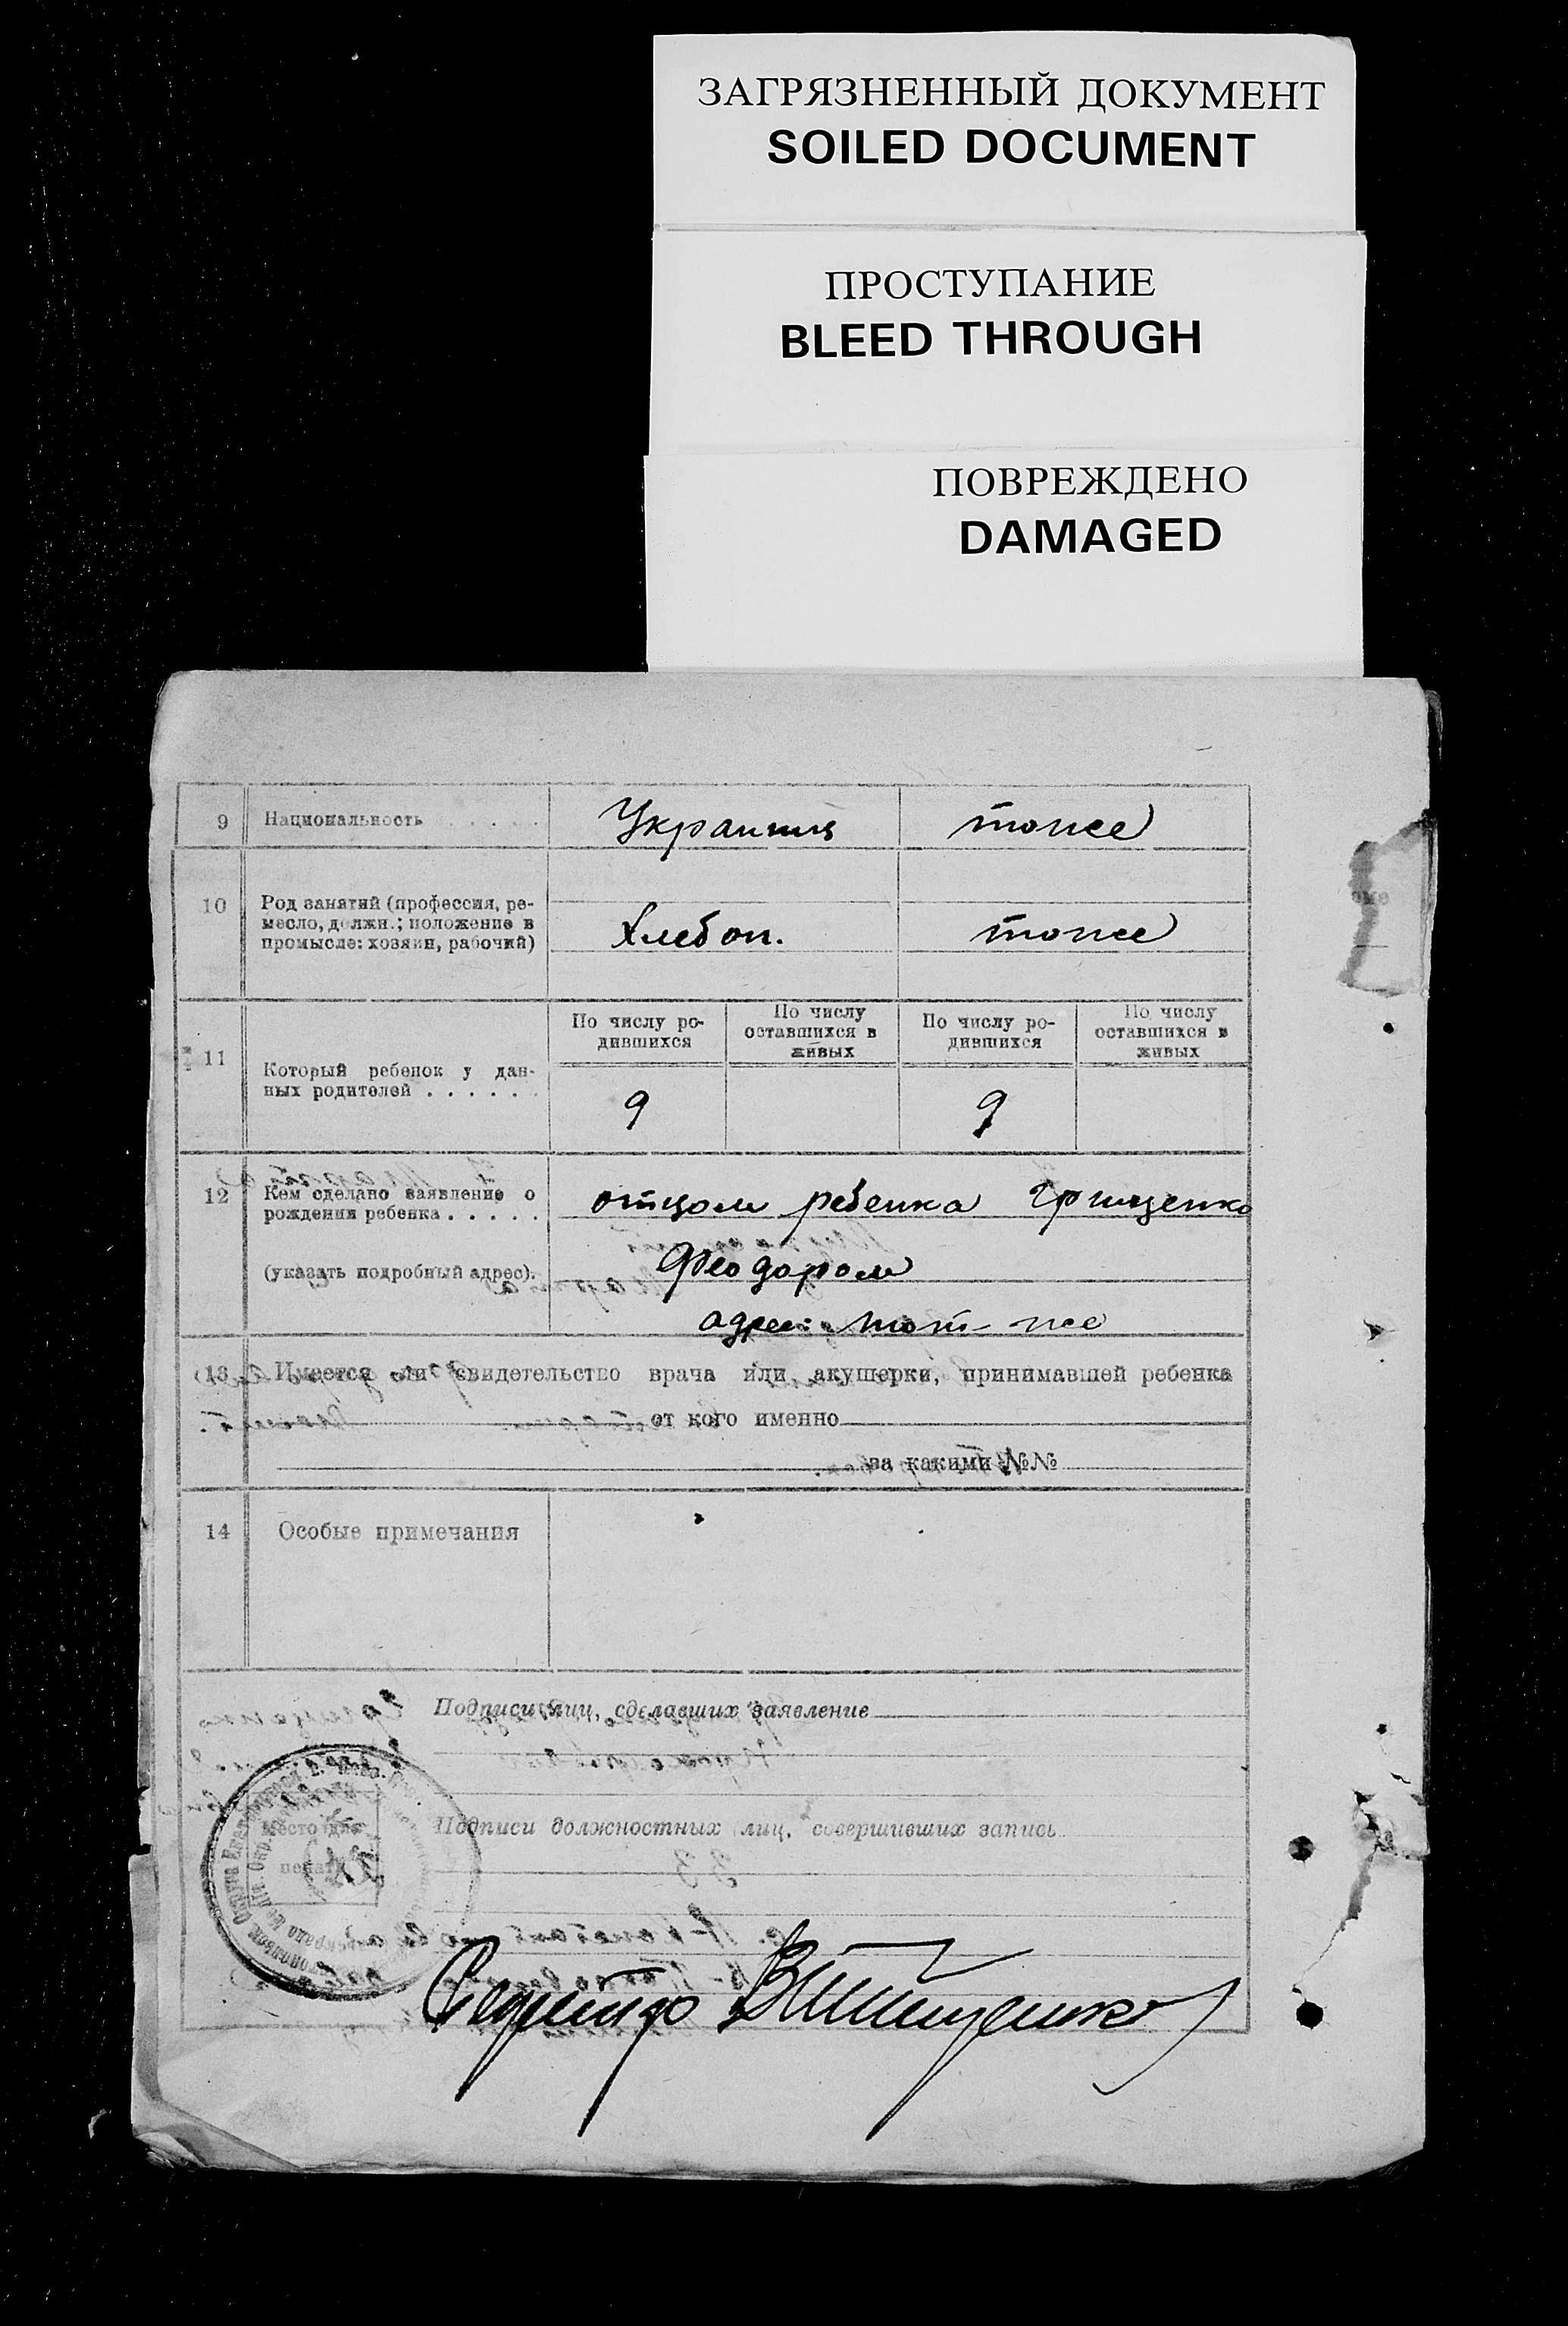 ЗАГРЯЗНЕННЫЙ ДОКУМЕНТ
SOILED DOCUMENT
ПРОСТУПАНИЕ
BLEED THROUGH
ПОВРЕЖДЕНО
DAMAGED
9 Национальность . . . . . Украинец тоже
10 Род занятий (профессия, ре-
месло, должн.; положение в
промысле: хозяин, рабочий)
Хлебоп. тоже
11 Который ребенок у дан-
ных родителей . . . . . .
По числу ро-
дившихся
По числу
оставшихся в
живых
По числу ро-
дившихся
По числу
оставшихся в
живых
9 9
12 Кем сделано заявление о
рождении ребенка . . . . .
(указать подробный адрес).
отцом ребенка Грищенко
Феодором
адрес: тот-же
13 Имеется ли свидетельство врача или акушерки, принимавшей ребенка
от кого именно
за какими №№
14 Особые примечания
Подписи лиц, сделавших заявление
Место для
печати
Подписи должностных лиц, совершивших запись